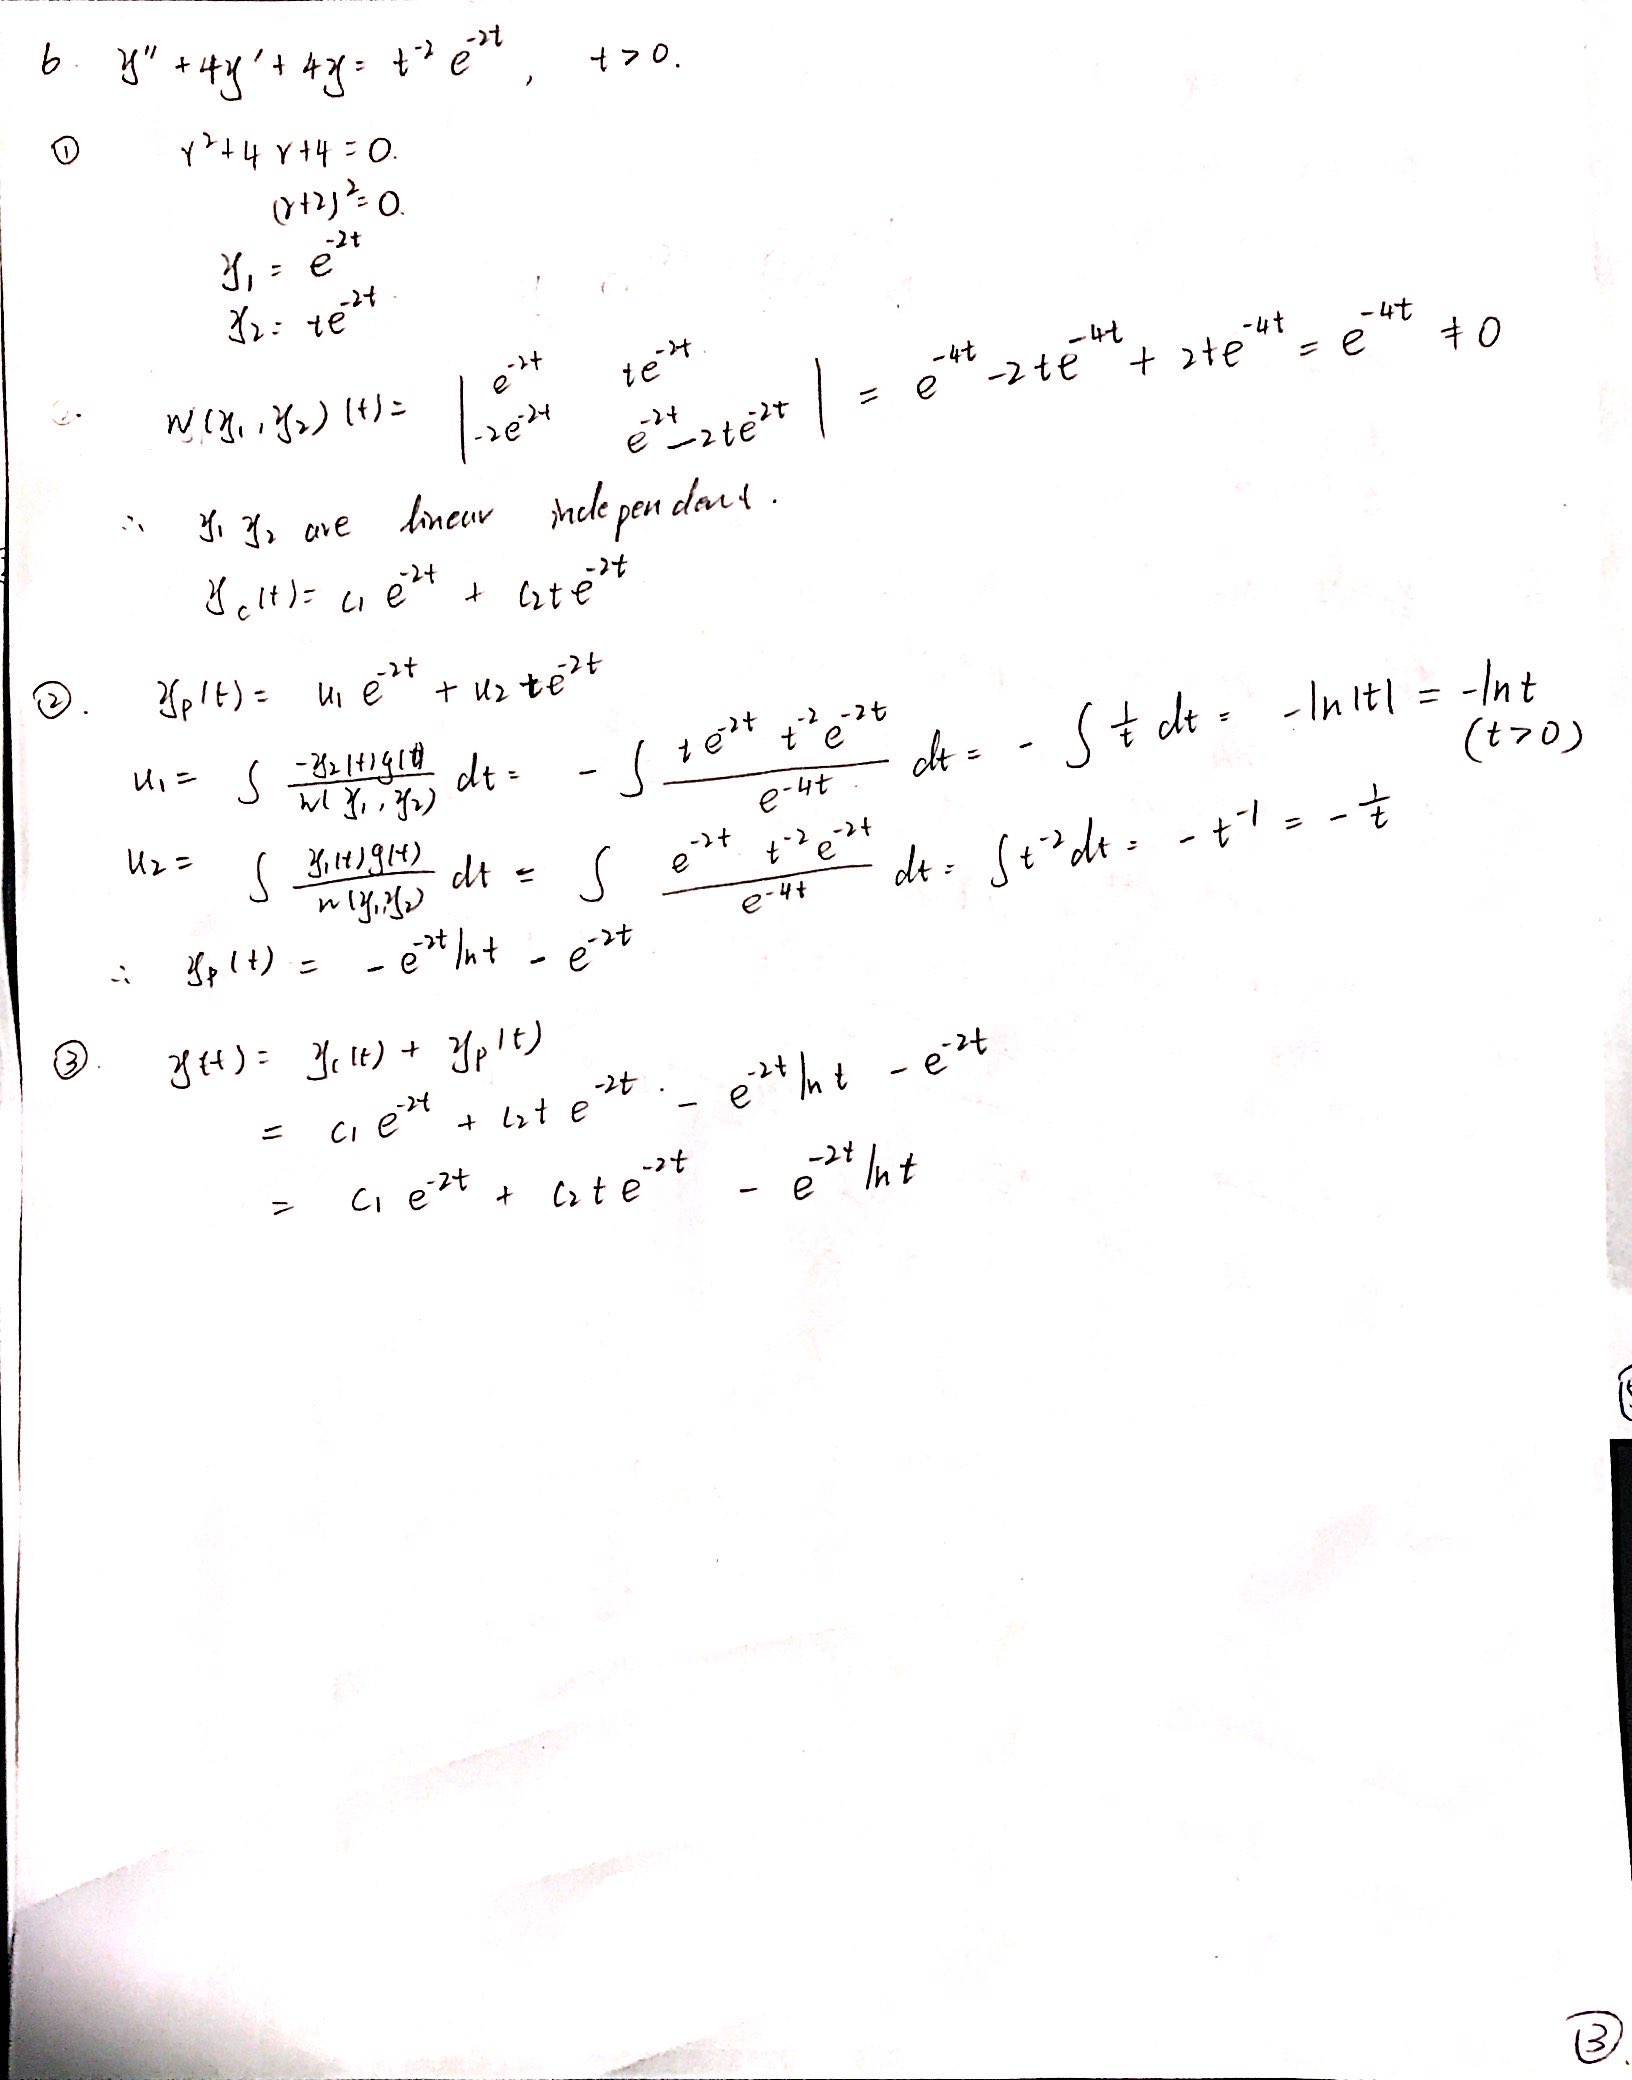 6. y'' + 4y' + 4y = t⁻² e⁻²ᵗ, t > 0.
① r² + 4r + 4 = 0.
(r+2)² = 0.
y₁ = e⁻²ᵗ
y₂ = te⁻²ᵗ
W(y₁, y₂)(t) = | e⁻²ᵗ te⁻²ᵗ ; -2e⁻²ᵗ e⁻²ᵗ - 2te⁻²ᵗ | = e⁻⁴ᵗ - 2te⁻⁴ᵗ + 2te⁻⁴ᵗ = e⁻⁴ᵗ ≠ 0
∴ y₁ y₂ are linear independent.
y_c(t) = c₁ e⁻²ᵗ + c₂te⁻²ᵗ
②. y_p(t) = u₁ e⁻²ᵗ + u₂ te⁻²ᵗ
u₁ = ∫ -y₂(t)g(t) / W(y₁, y₂) dt = - ∫ te⁻²ᵗ t⁻² e⁻²ᵗ / e⁻⁴ᵗ dt = - ∫ 1/t dt = -ln|t| = -ln t (t>0)
u₂ = ∫ y₁(t)g(t) / W(y₁,y₂) dt = ∫ e⁻²ᵗ t⁻² e⁻²ᵗ / e⁻⁴ᵗ dt = ∫ t⁻² dt = - t⁻¹ = - 1/t
∴ y_p(t) = - e⁻²ᵗ ln t - e⁻²ᵗ
③. y(t) = y_c(t) + y_p(t)
= c₁ e⁻²ᵗ + c₂t e⁻²ᵗ - e⁻²ᵗ ln t - e⁻²ᵗ
= c₁ e⁻²ᵗ + c₂ t e⁻²ᵗ - e⁻²ᵗ ln t
③.